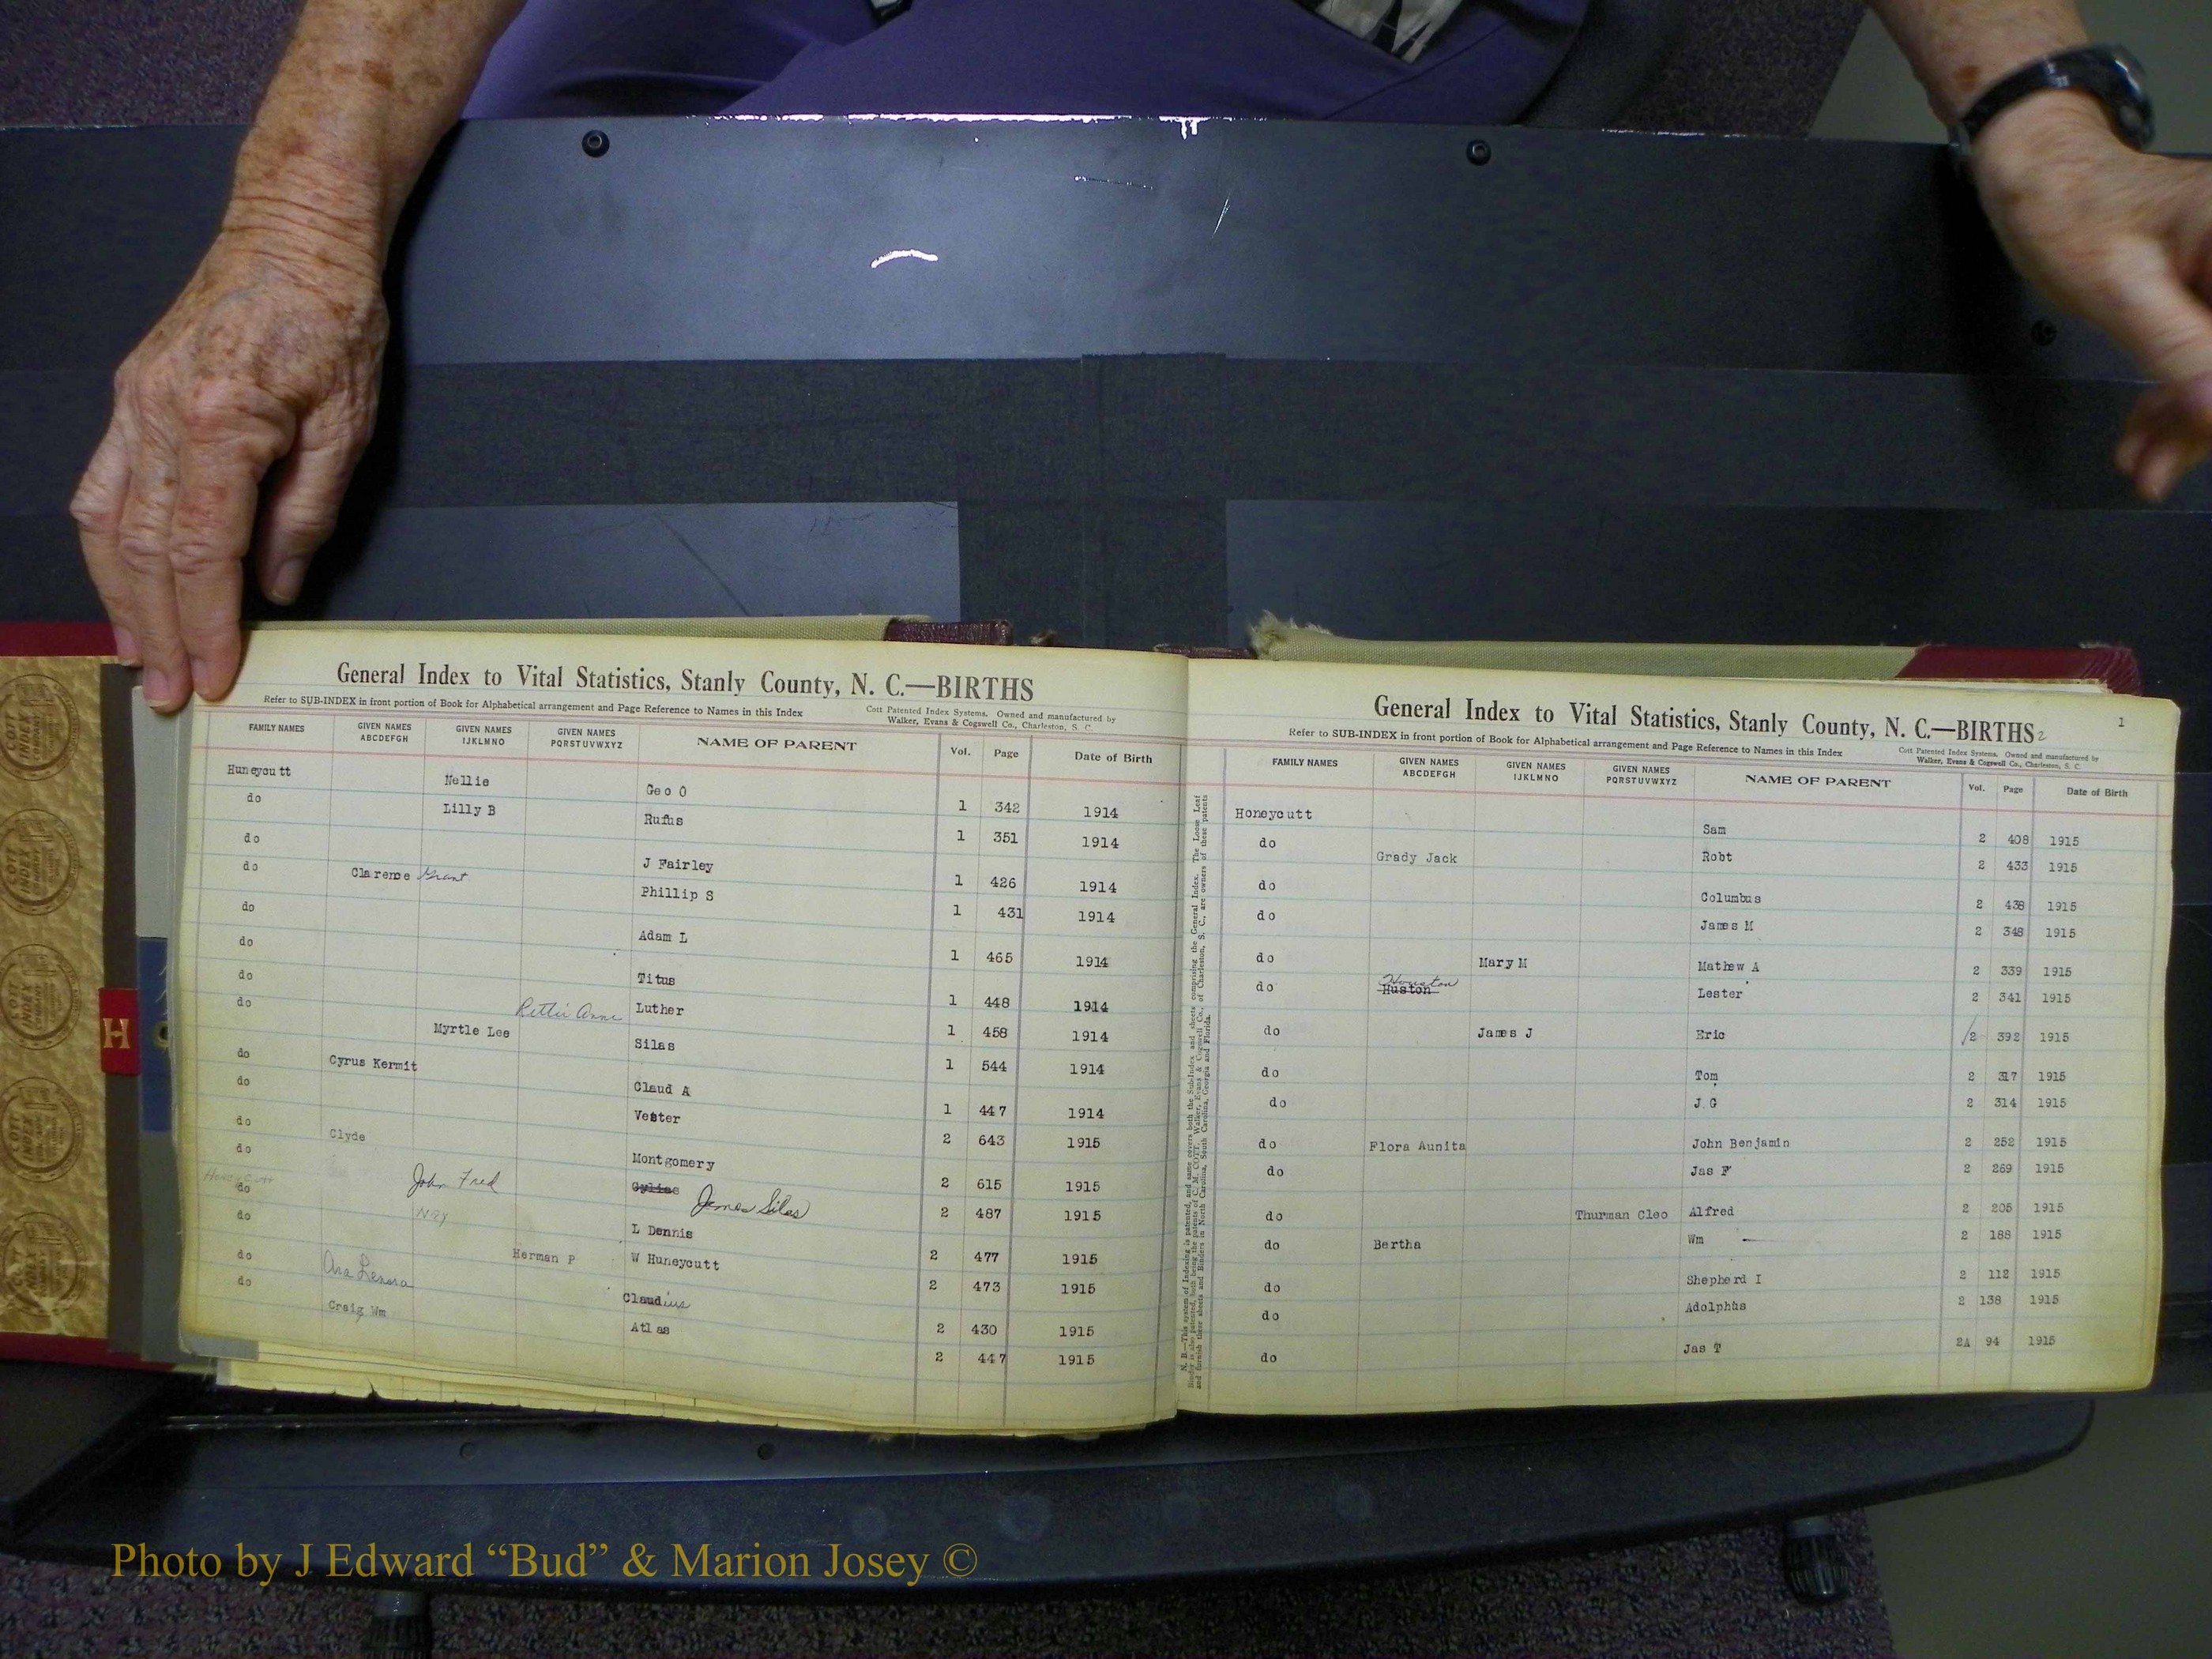 General Index to Vital Statistics, Stanly County, N. C.—BIRTHS
Refer to SUB-INDEX in front portion of Book for Alphabetical arrangement and Page Reference to Names in this Index
Cott Patented Index Systems, Owned and manufactured by
Walker, Evans & Cogswell Co., Charleston, S. C.
FAMILY NAMES GIVEN NAMES ABCDEFGH GIVEN NAMES IJKLMNO GIVEN NAMES PQRSTUVWXYZ NAME OF PARENT Vol. Page Date of Birth
Huneycutt Nellie Geo O 1 342 1914
do Lilly B Rufus 1 351 1914
do J Fairley 1 426 1914
do Clarence Grant Phillip S 1 431 1914
do Adam L 1 465 1914
do Titus 1 448 1914
do Rettie Anne Luther 1 458 1914
do Myrtle Lee Silas 1 544 1914
do Cyrus Kermit Claud A 1 447 1914
do Vester 2 643 1915
do Clyde Montgomery 2 615 1915
do John Fred James Silas 2 487 1915
do L Dennis 2 477 1915
do Herman P W Huneycutt 2 473 1915
do Ara Lenora Claudius 2 430 1915
do Craig Wm Atlas 2 447 1915
H
General Index to Vital Statistics, Stanly County, N. C.—BIRTHS 2
1
Refer to SUB-INDEX in front portion of Book for Alphabetical arrangement and Page Reference to Names in this Index
Cott Patented Index Systems, Owned and manufactured by
Walker, Evans & Cogswell Co., Charleston, S. C.
FAMILY NAMES GIVEN NAMES ABCDEFGH GIVEN NAMES IJKLMNO GIVEN NAMES PQRSTUVWXYZ NAME OF PARENT Vol. Page Date of Birth
Honeycutt Sam 2 408 1915
do Grady Jack Robt 2 433 1915
do Columbus 2 438 1915
do James M 2 348 1915
do Mary M Mathew A 2 339 1915
do Houston Huston Lester 2 341 1915
do James J Eric 2 392 1915
do Tom 2 317 1915
do J G 2 314 1915
do Flora Aunita John Benjamin 2 252 1915
do Jas F 2 269 1915
do Thurman Cleo Alfred 2 205 1915
do Bertha Wm 2 188 1915
do Shepherd I 2 112 1915
do Adolphus 2 138 1915
do Jas T 2A 94 1915
Photo by J Edward “Bud” & Marion Josey ©